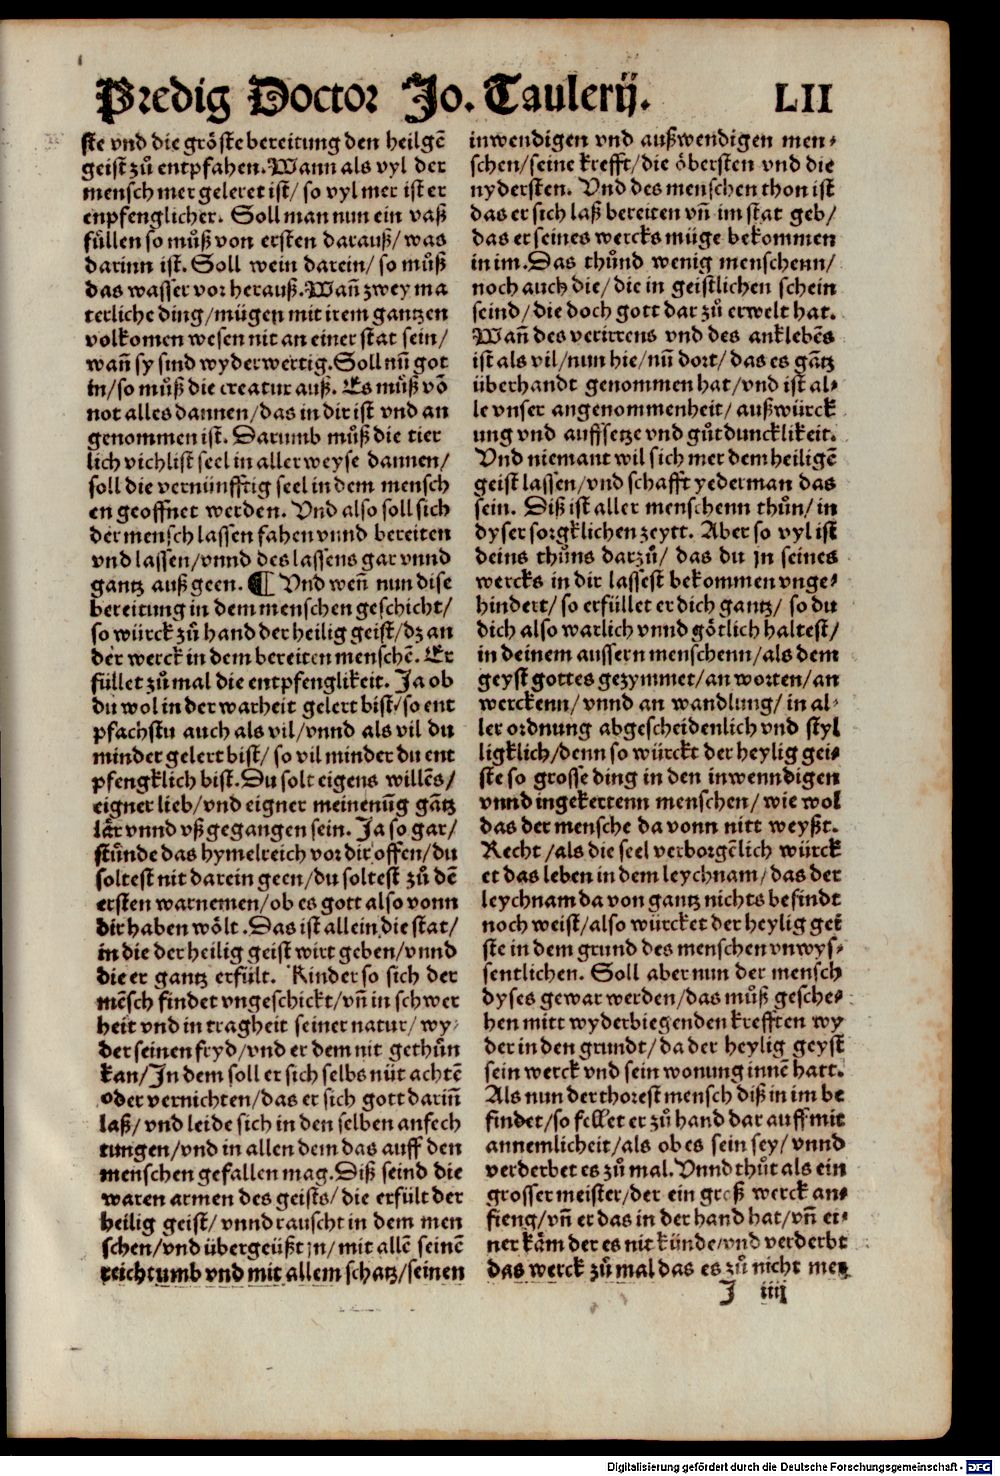 Predig Doctor Jo. Taulerij. LII
ste vnd die gröste bereitung den heilgē
geist zů entpfahen. Wann als vyl der
mensch mer geleret ist/ so vyl mer ist er
enpfenglicher. Soll man nun ein vaß
füllen so můß von ersten darauß/ was
darinn ist. Soll wein darein/ so můß
das wasser vor herauß. Wañ zwey ma
terliche ding/ mügen mit irem gantzen
volkomen wesen nit an einer stat sein/
wañ sy sind wyderwertig. Soll nū got
in/ so můß die creatur auß. Es můß vō
not alles dannen/ das in dir ist vnd an
genommen ist. Darumb můß die tier
lich vichlist seel in aller weyse dannen/
soll die vernünfftig seel in dem mensch
en geoffnet werden. Vnd also soll sich
der mensch lassen fahen vnnd bereiten
vnd lassen/ vnnd des lassens gar vnnd
gantz auß geen. ¶ Vnd weñ nun dise
bereitung in dem menschen geschicht/
so würck zů hand der heilig geist/ dz an
der werck in dem bereiten menschē. Er
füllet zů mal die entpfenglikeit. Ja ob
du wol in der warheit gelert bist/ so ent
pfachstu auch als vil/ vnnd als vil du
minder gelert bist/ so vil minder du ent
pfengklich bist. Du solt eigens willēs/
eigner lieb/ vnd eigner meinenūg gātz
lär vnnd vß gegangen sein. Ja so gar/
stünde das hymelreich vor dir offen/ du
soltest nit darein geen/ du soltest zů dē
ersten warnemen/ ob es gott also vonn
dir haben wölt. Das ist allein die stat/
in die der heilig geist wirt geben/ vnnd
die er gantz erfült. Kinder so sich der
mēsch findet vngeschickt/ vñ in schwer
heit vnd in tragheit seiner natur/ wy
der seinen fryd/ vnd er dem nit gethůn
kan/ In dem soll er sich selbs nüt achtē
oder vernichten/ das er sich gott dariñ
laß/ vnd leide sich in den selben anfech
tungen/ vnd in allen dem das auff den
menschen gefallen mag. Diß seind die
waren armen des geists/ die erfült der
heilig geist/ vnnd rauscht in dem men
schen/ vnd übergeüßt jn/ mit allē seinē
reichtumb vnd mit allem schatz/ seinen
inwendigen vnd außwendigen men⸗
schen/ seine krefft/ die öbersten vnd die
nydersten. Vnd des menschen thon ist
das er sich laß bereiten vñ im stat geb/
das er seines wercks müge bekommen
in im. Das thůnd wenig menschenn/
noch auch die/ die in geistlichen schein
seind/ die doch gott dar zů erwelt hat.
Wañ des verirrens vnd des anklebēs
ist als vil/ nun hie/ nū dort/ das es gātz
überhandt genommen hat/ vnd ist al⸗
le vnser angenommenheit/ außwürck
ung vnd auffsetze vnd gůtduncklikeit.
Vnd niemant wil sich mer dem heiligē
geist lassen/ vnd schafft yederman das
sein. Diß ist aller menschenn thůn/ in
dyser sorgklichen zeytt. Aber so vyl ist
deins thůns darzů/ das du jn seines
wercks in dir lassest bekommen vnge⸗
hindert/ so erfüllet er dich gantz/ so du
dich also warlich vnnd götlich haltest/
in deinem aussern menschenn/ als dem
geyst gottes gezymmet/ an worten/ an
werckenn/ vnnd an wandlung/ in al⸗
ler ordnung abgescheidenlich vnd styl
ligklich/ denn so würckt der heylig gei⸗
ste so grosse ding in den inwenndigen
vnnd ingekertenn menschen/ wie wol
das der mensche da vonn nitt weyßt.
Recht/ als die seel verborgēlich würck
et das leben in dem leychnam/ das der
leychnam da von gantz nichts befindt
noch weist/ also würcket der heylig gei
ste in dem grund des menschen vnwys⸗
sentlichen. Soll aber nun der mensch
dyses gewar werden/ das můß gesche⸗
hen mitt wyderbiegenden krefften wy
der in den grundt/ da der heylig geyst
sein werck vnd sein wonung innē hatt.
Als nun der thorest mensch diß in im be
findet/ so fellet er zů hand dar auff mit
annemlicheit/ als ob es sein sey/ vnnd
verderbet es zů mal. Vnnd thůt als ein
grosser meister/ der ein groß werck an⸗
fieng/ vñ er das in der hand hat/ vñ ei⸗
ner käm der es nit künde/ vnd verderbt
das werck zů mal das es zů nicht mer
J iiij
Digitalisierung gefördert durch die Deutsche Forschungsgemeinschaft - DFG